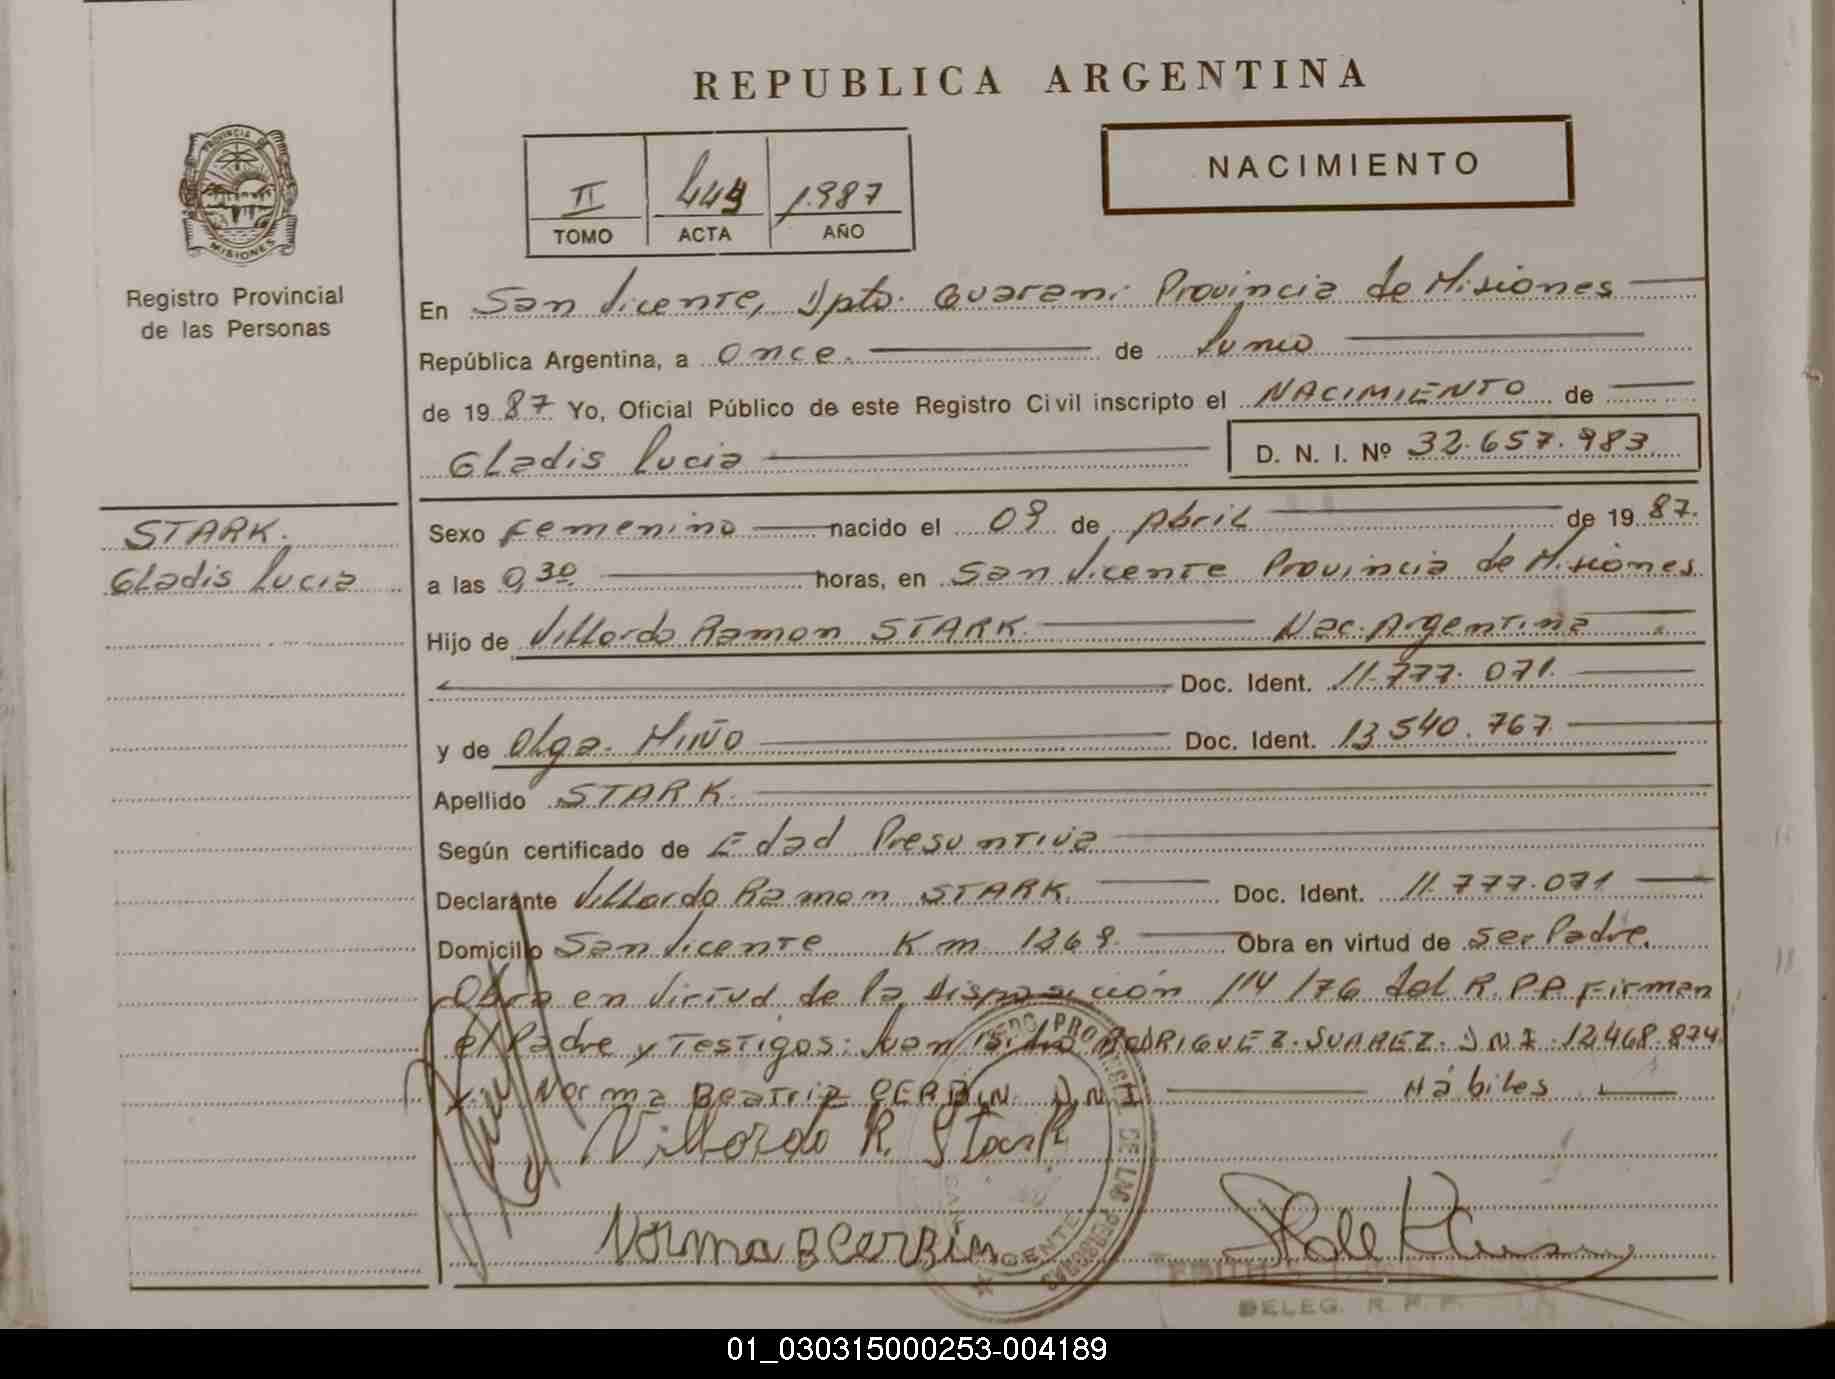 REPUBLICA ARGENTINA
NACIMIENTO
II 449 1.987
TOMO ACTA AÑO
PROVINCIA DE
MISIONES
Registro Provincial
de las Personas
En San Vicente, Dpto. Guarani Provincia de Misiones
República Argentina, a once. de Junio
de 19 87 Yo, Oficial Público de este Registro Civil inscripto el NACIMIENTO de
Gladis Lucia D. N. I. Nº 32.657.983
STARK.
Gladis Lucia
Sexo Femenino nacido el 09 de Abril de 19 87.
a las 0,30 horas, en San Vicente Provincia de Misiones
Hijo de Villordo Ramon STARK. Nac. Argentina
Doc. Ident. 11.777.071.
y de Olga MIÑO Doc. Ident. 13.540.767
Apellido STARK.
Según certificado de Edad Presuntiva
Declarante Villordo Ramon STARK. Doc. Ident. 11.777.071
Domicilio San Vicente Km. 1269. Obra en virtud de ser Padre.
Obra en Virtud de la Disposición 114/76 del R.P.P. Firman
el Padre y Testigos: Juan Isidro RODRIGUEZ. SUAREZ. DNI. 12.468.874
Norma Beatriz CERBIN. DNI Hábiles
Villordo R. Stark
Norma B Cerbin
DELEG. R. P. P.
01_030315000253-004189